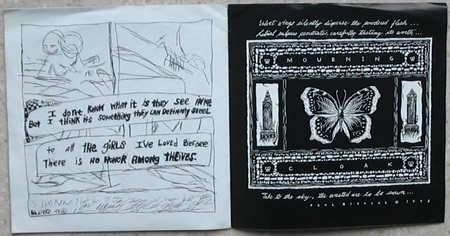 I don't know what it is they see in me
But I think its something they can definitly steel
to all the GIRLS I've Loved Before
There is no HONOR AMONG THEIVES.
Velvet wings silently disperse the powdered flesh...
labial palpus penetrates, carefully tasting its worth...
MOURNING
CLOAK
Take to the sky... the wasted are to be sown...